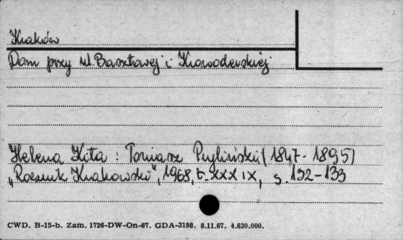 Kraków
Dom przy ul. Basztowej i Krowoderskiej
Helena Kita: Tomasz Pryliński (1847-1895)
„Rocznik Krakowski", 1968, t. XXXIX, s. 132-133
CWD. B-15-b. Zam. 1726-DW-On-67. GDA-3198. 8.11.67. 4.630.000.